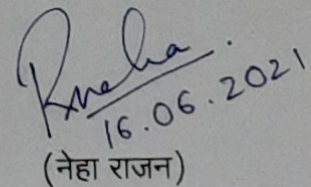 Rneha.
16.06.2021
(नेहा राजन)